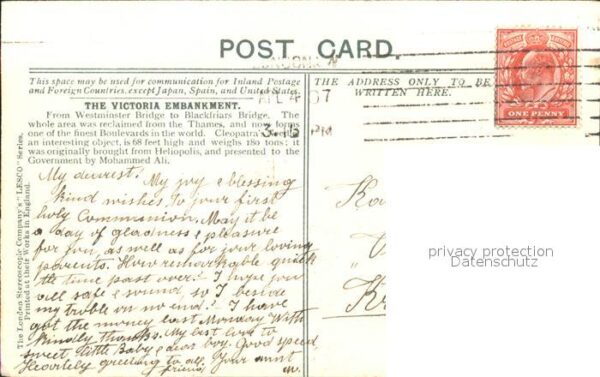 POST CARD.
This space may be used for communication for Inland Postage
and Foreign Countries, except Japan, Spain, and United States.
THE ADDRESS ONLY TO BE
WRITTEN HERE.
THE VICTORIA EMBANKMENT.
From Westminster Bridge to Blackfriars Bridge. The
whole area was reclaimed from the Thames, and now forms
one of the finest Boulevards in the world. Cleopatra's Needle
an interesting object, is 68 feet high and weighs 180 tons; it
was originally brought from Heliopolis, and presented to the
Government by Mohammed Ali.
The London Stereoscopic Company's "LESCO" Series.
Printed at their Works in England.
ONE PENNY
4 07
3.15
My dearest. My joy & blessing
kind wishes to your first
holy Communion. May it be
a day of gladness & pleasure
for you, as well as for your loving
parents. How remarkable quick
the time past over! I hope you
all safe & sound, so I beside
my trouble on no end! I have
got the money last Monday With
kindly thanks. My best love to
sweet little Baby & dear boy. Good speed
Heavitely greeting to all. Your aunt
friend
privacy protection
Datenschutz